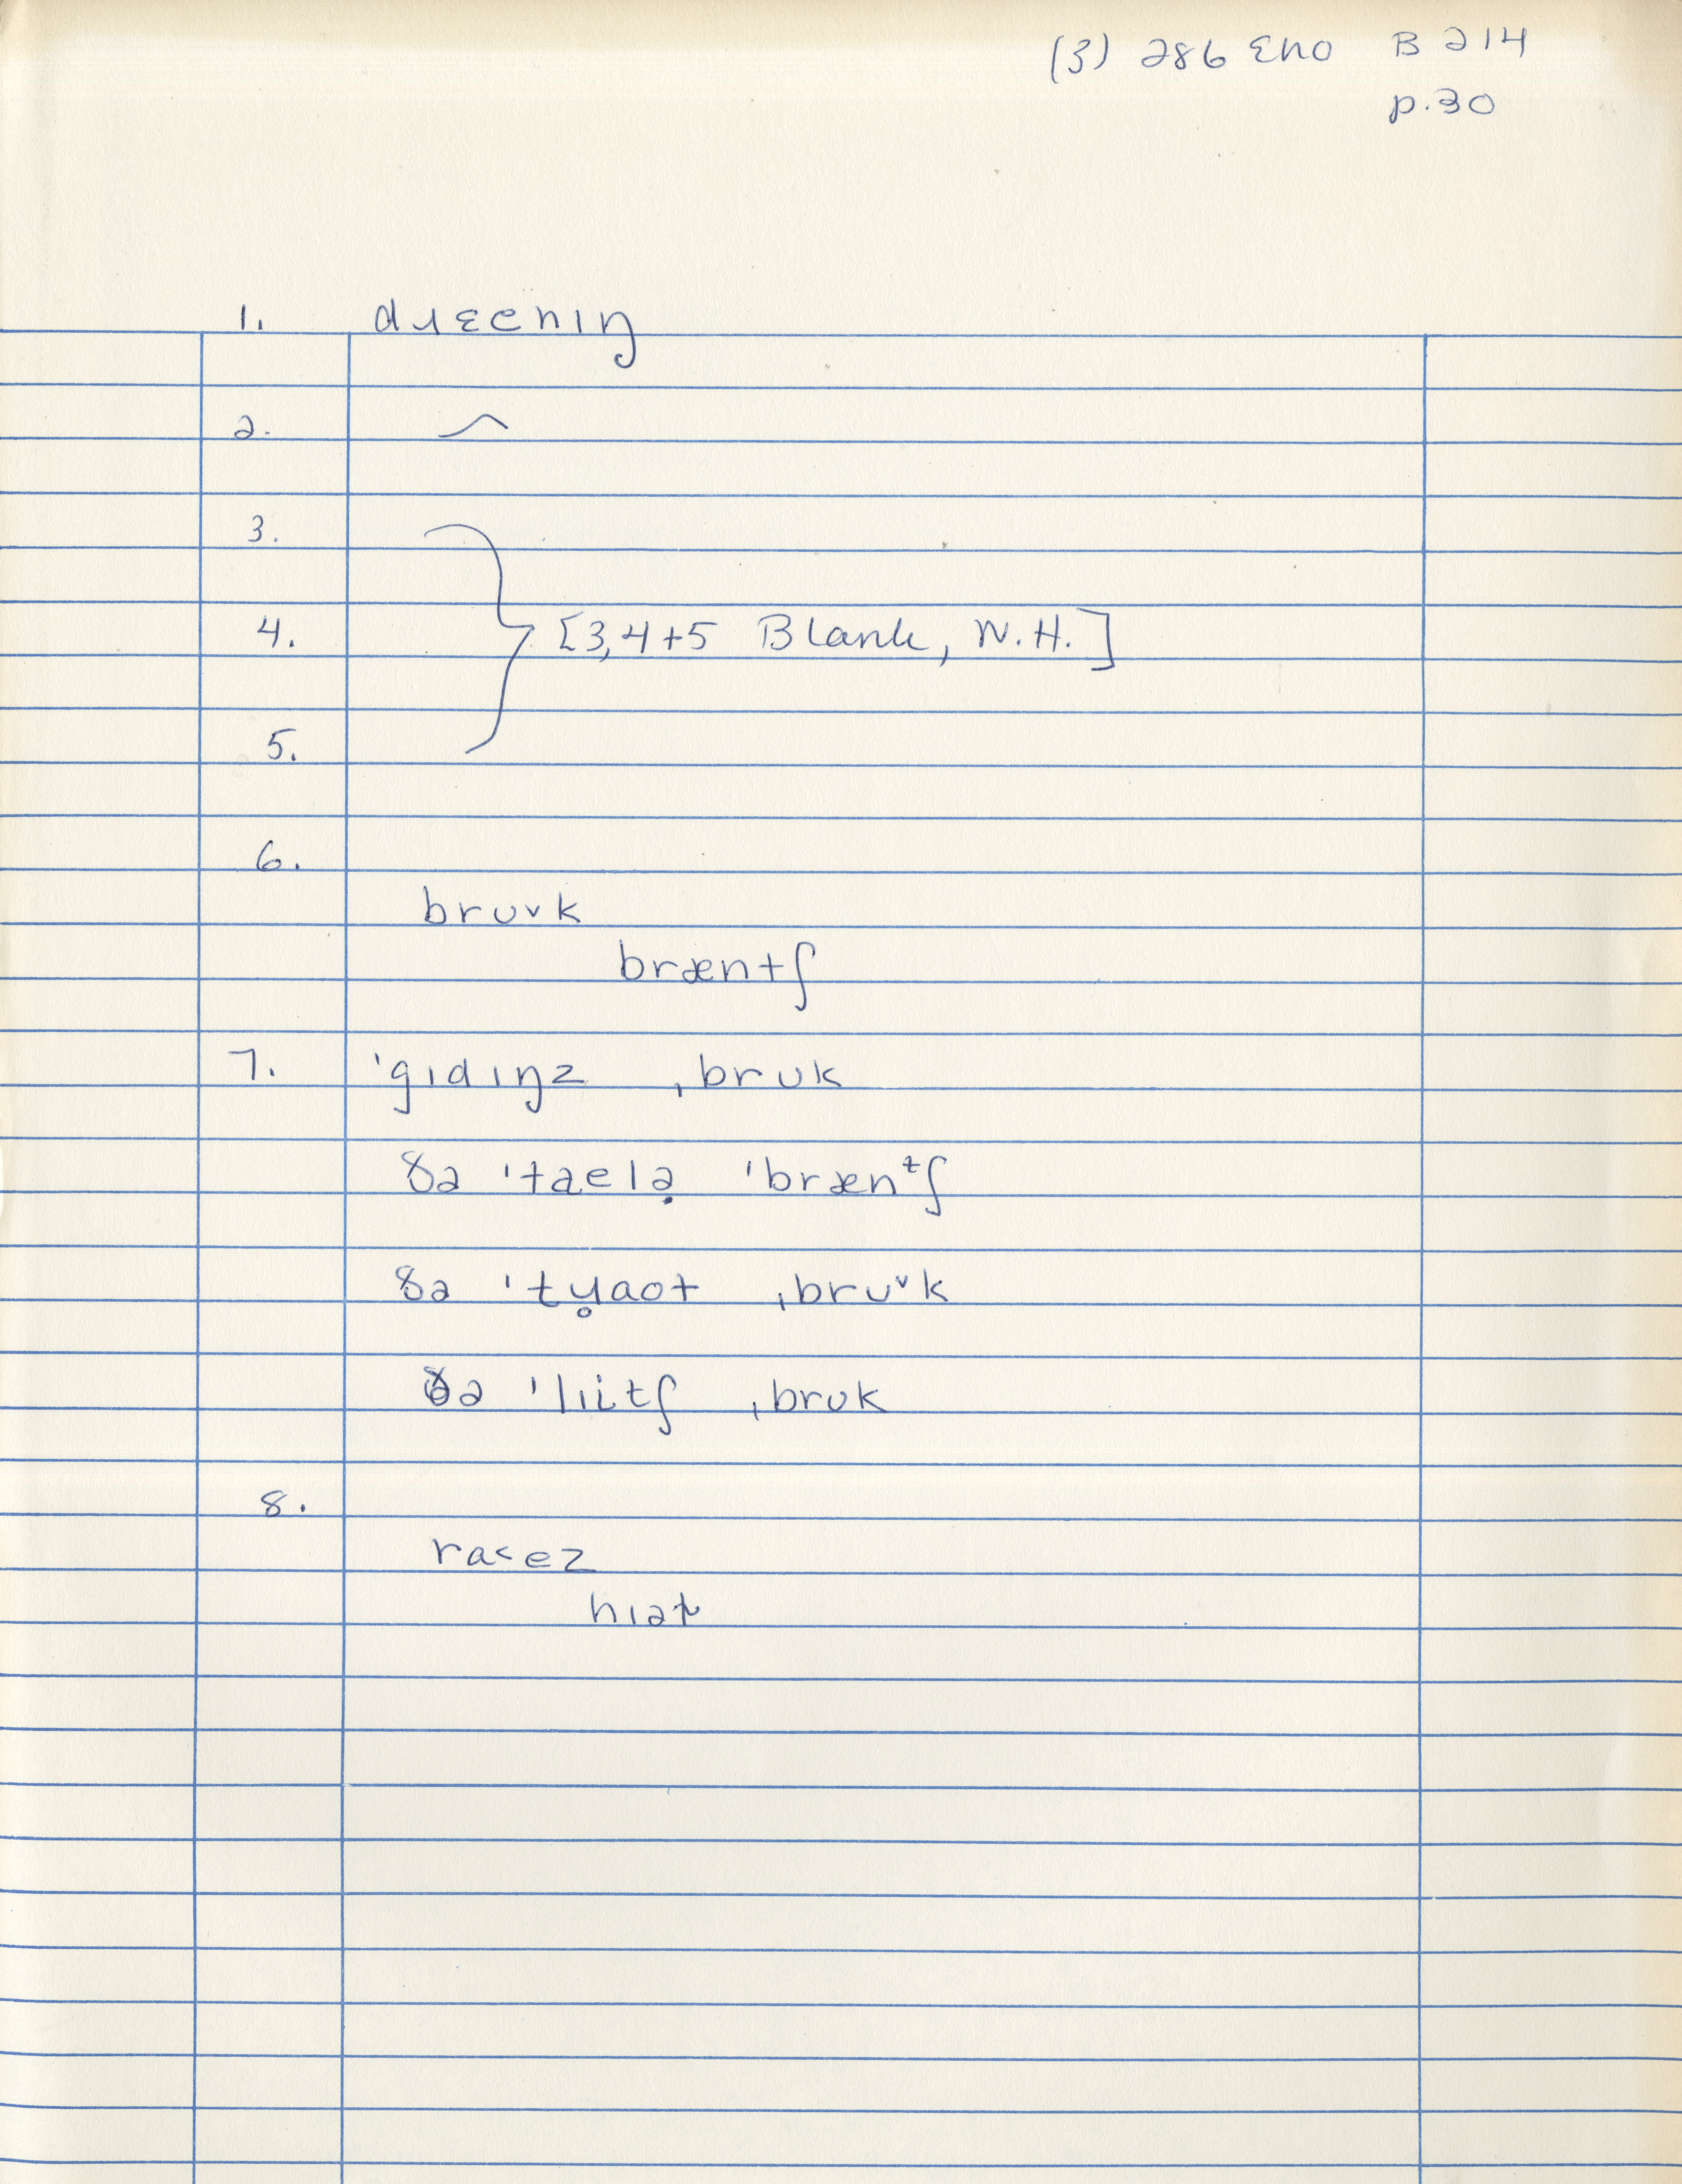 (3) 286 Eno B 214
p.30
1. dɹɛeniŋ
2. ⁀
3.
4. [3,4+5 Blank, N.H.]
5.
6.
brʊvk
bræntʃ
7. ˈgɪdɪŋz ˌbrʊk
ðə ˈtaelə̣ ˈbrænᵗʃ
ðə ˈtɥ̥aot ˌbrʊᵛk
ðə ˈlɪitʃ ˌbrʊk
8.
ra<ez